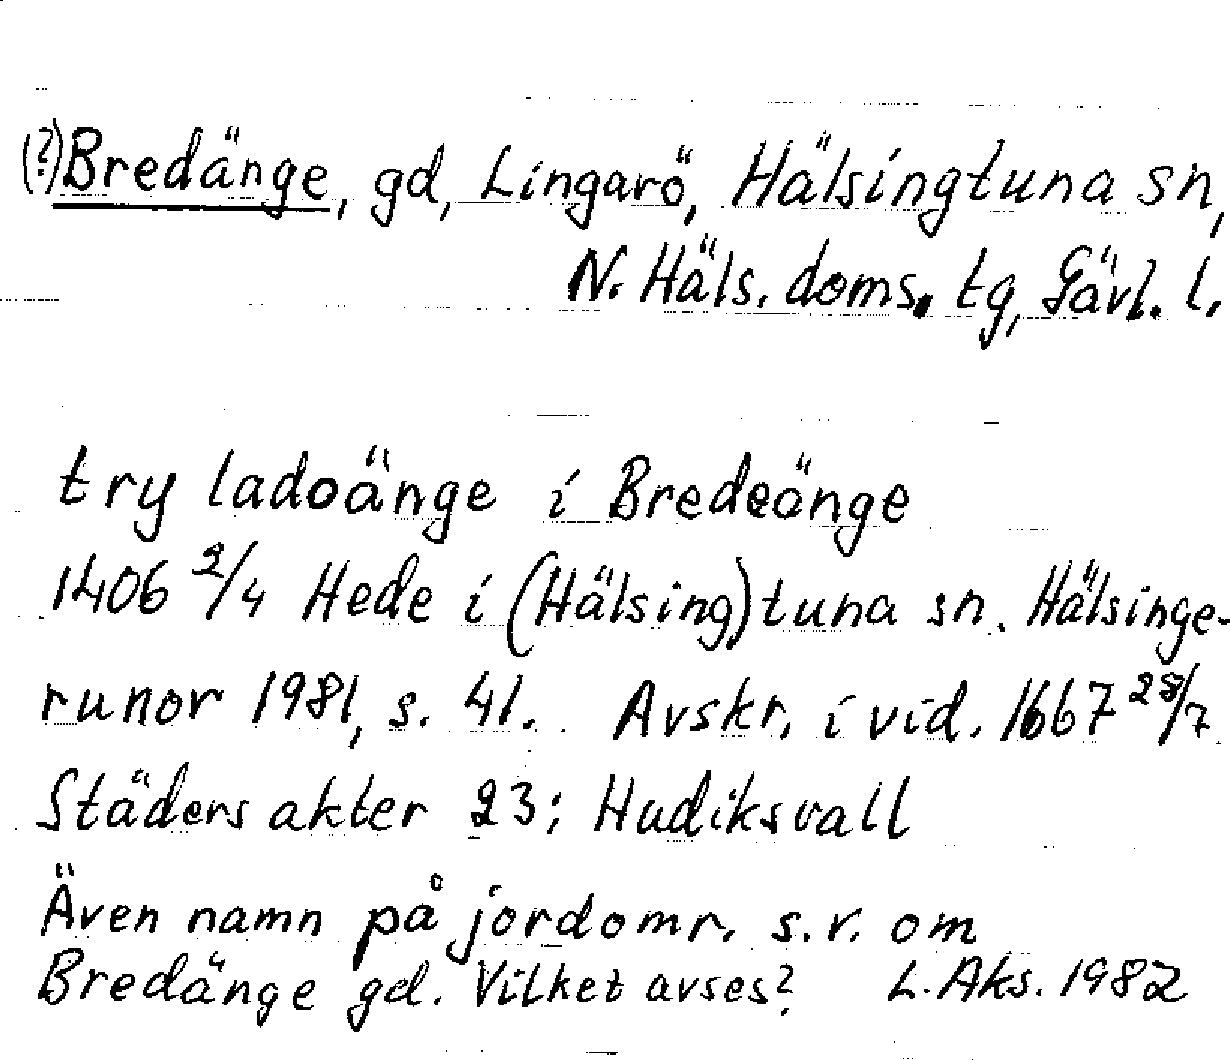 (?)Bredänge, gd, Lingarö, Hälsingtuna sn,
N. Häls. doms. tg, Gävl. l.
try ladoänge i Bredeänge
1406 2/4 Hede i (Hälsing)tuna sn. Hälsinge-
runor 1981, s. 41. Avskr. i vid. 1667 28/7
Städers akter 23; Hudiksvall
Även namn på jordomr. s.v. om
Bredänge gd. Vilket avses? L. Aks. 1982